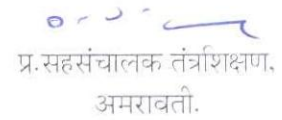 प्र.सहसंचालक तंत्रशिक्षण,
अमरावती.